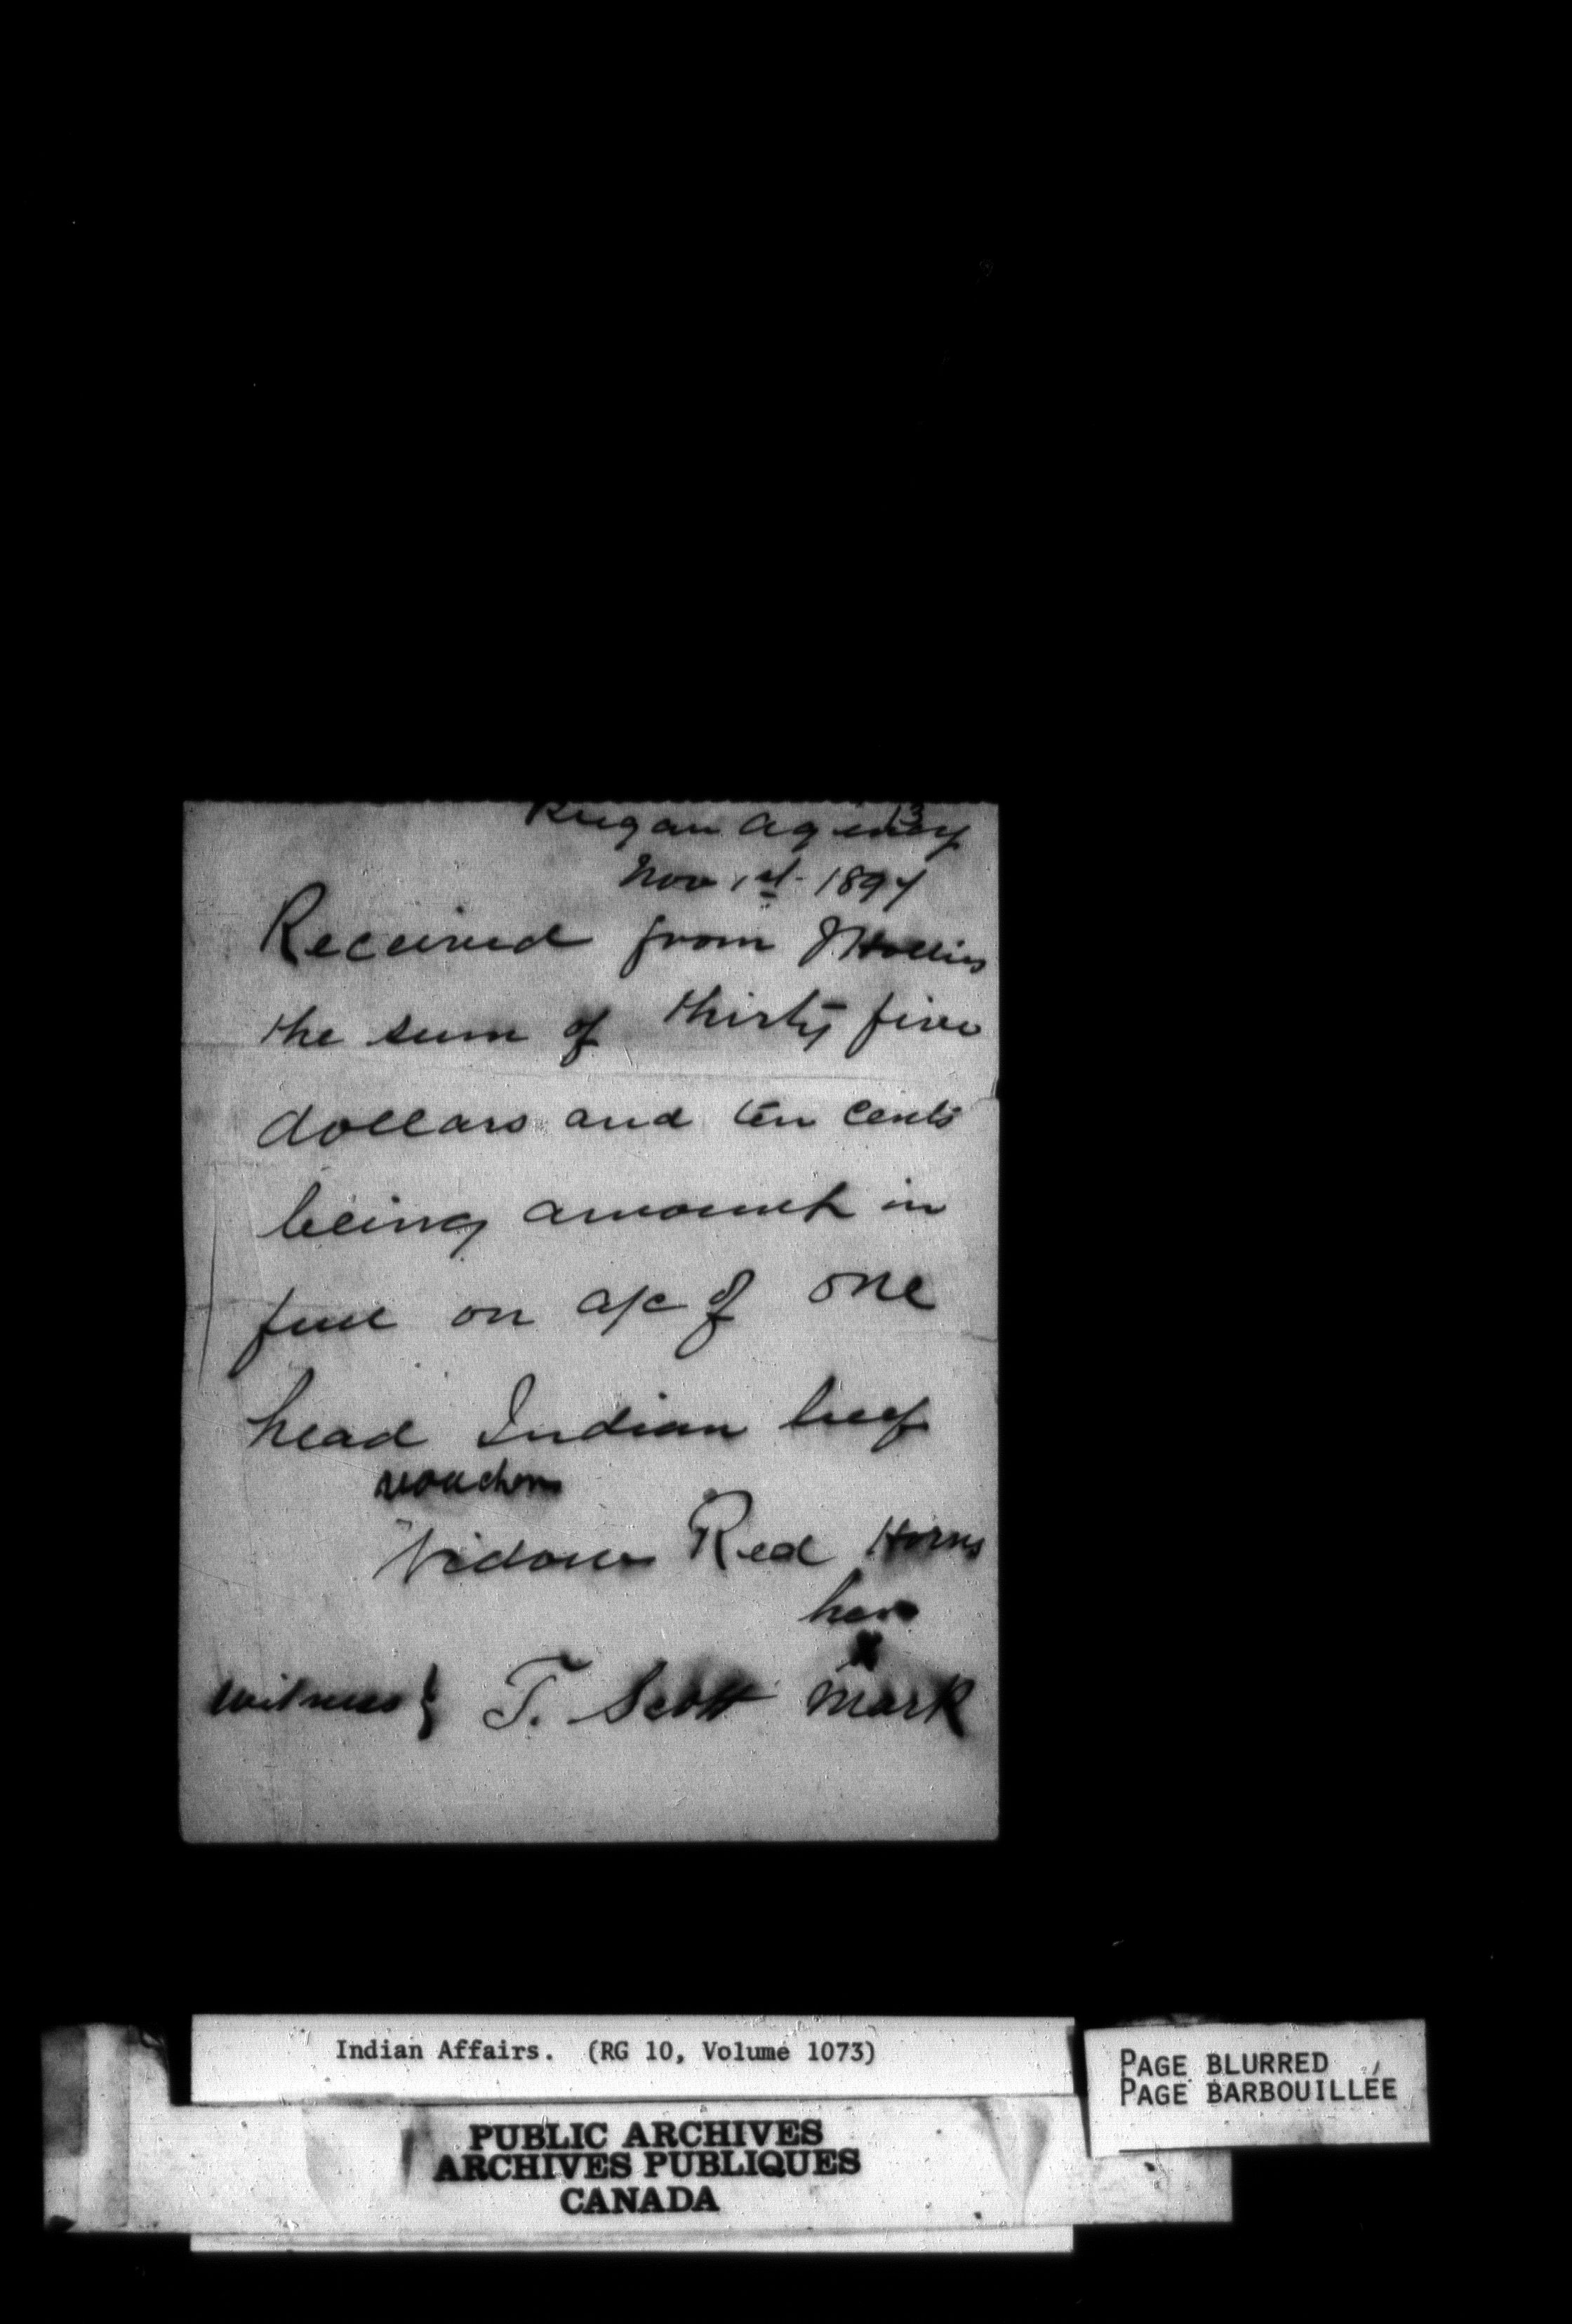 13
Piegan Agency
Nov 1st 1897
Received from J Hollies
the sum of thirty five
dollars and ten cents
being amount in
full on a/c of one
head Indian beef
vouchers
Widow Red Horns
her
x
witness } T. Scott mark
Indian Affairs. (RG 10, Volume 1073)
PUBLIC ARCHIVES
ARCHIVES PUBLIQUES
CANADA
PAGE BLURRED
PAGE BARBOUILLÉE